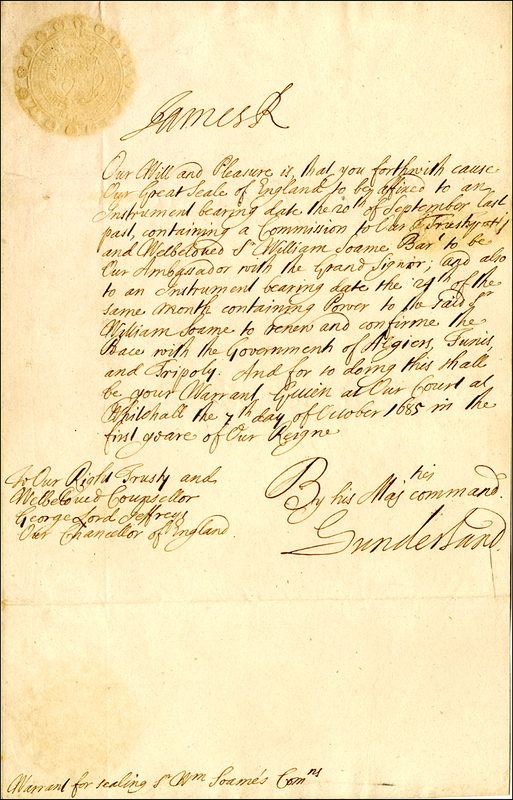 James R
Our Will and Pleasure is, that you forthwith cause
Our Great Seale of England to be affixed to an
Instrument bearing date the 20th of September last
past, containing a Commission to Our Trusty
and Welbeloved Sr William Soame Bart to be
Our Ambassador with the Grand Signior; and also
to an Instrument bearing date the 24th of the
same Month containing Power to the said Sr
William Soame to renew and confirme the
Peace with the Government of Algiers, Tunis,
and Tripoly. And for so doing this shall
be your Warrant, Given at Our Court at
Whitehall the 7th day of October 1685 in the
first yeare of Our Reigne
To Our Right Trusty and
Welbeloved Counsellor
George Lord Jeffreys
Our Chancellor of England.
By his Maj ties command.
Sunderland.
Warrant for sealing Sr Wm Soame's Comns